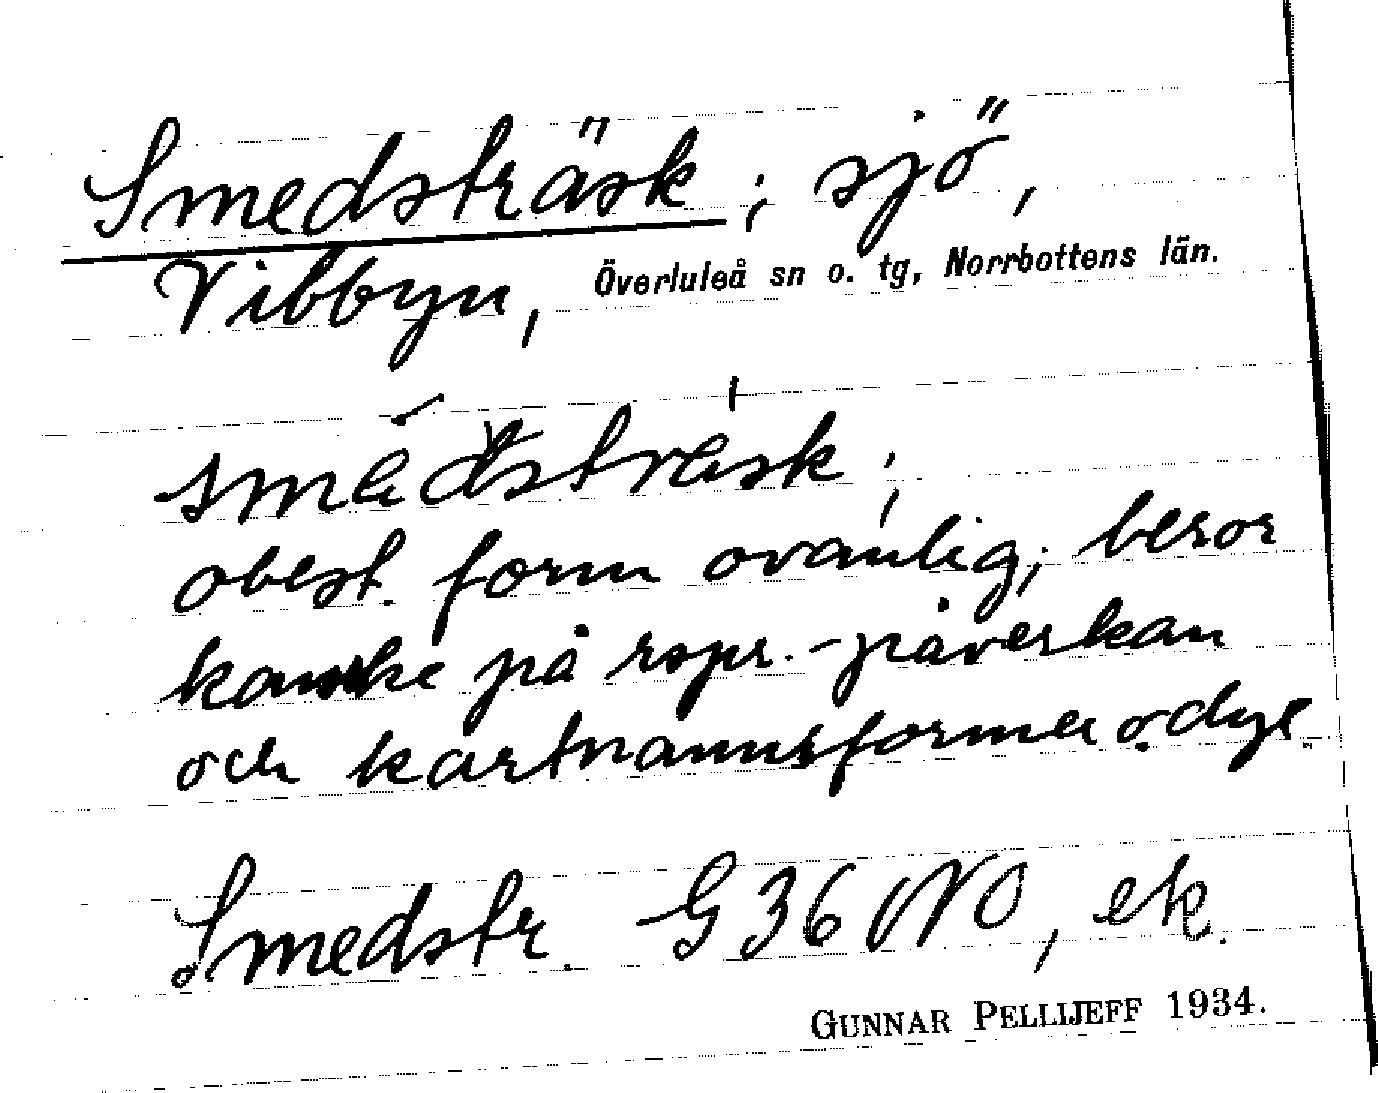 Smedsträsk; sjö,
Vibbyn, Överluleå sn o. tg, Norrbottens län.
obest. form ovanlig; beror
kanske på rspr.-påverkan
och kartnamnsformer o. dyl.
Smedstr. G36NO, ek.
GUNNAR PELLIJEFF 1934.